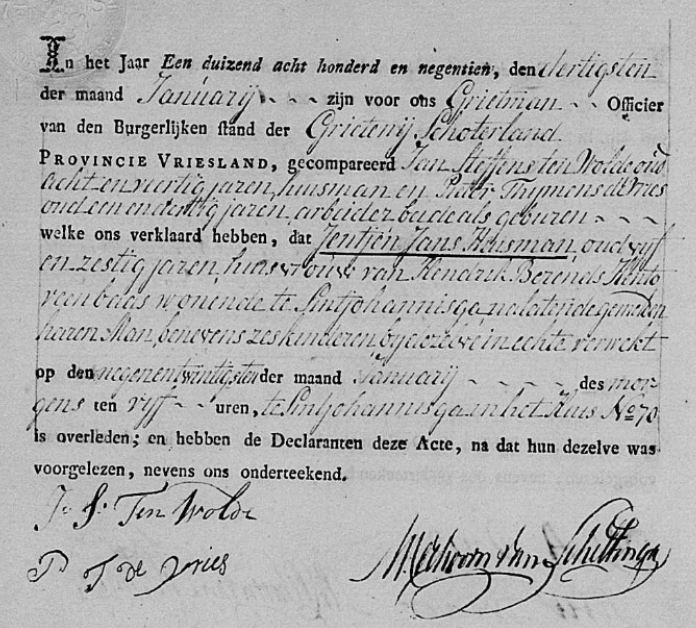 In het Jaar Een duizend acht honderd en negentien, den dertigsten
der maand Januarij - - - zijn voor ons Grietman - - Officier
van den Burgerlijken stand der Grietenij Schoterland
PROVINCIE VRIESLAND, gecompareerd Jan Steffens ten Wolde oud
acht en veertig jaren, huisman en Pieter Thijmens de Vries
oud een en dertig jaren, arbeider beide als geburen - - -
welke ons verklaard hebben, dat Jentjen Jans Huisman, oud vijf
en zestig jaren, huisvrouw van Hendrik Berends
veenbaas wonende te Sintjohannisga nalatende gemelden
haren Man, benevens zes kinderen bij dezelve in echte verwekt
op den negenentwintigsten der maand Januarij - - - - des mor-
gens ten vijf - - uren, te Sintjohannisga in het Huis No 70
is overleden; en hebben de Declaranten deze Acte, na dat hun dezelve was
voorgelezen, nevens ons onderteekend.
J. S. Ten Wolde
P. T. de Vries
van Scheltinga